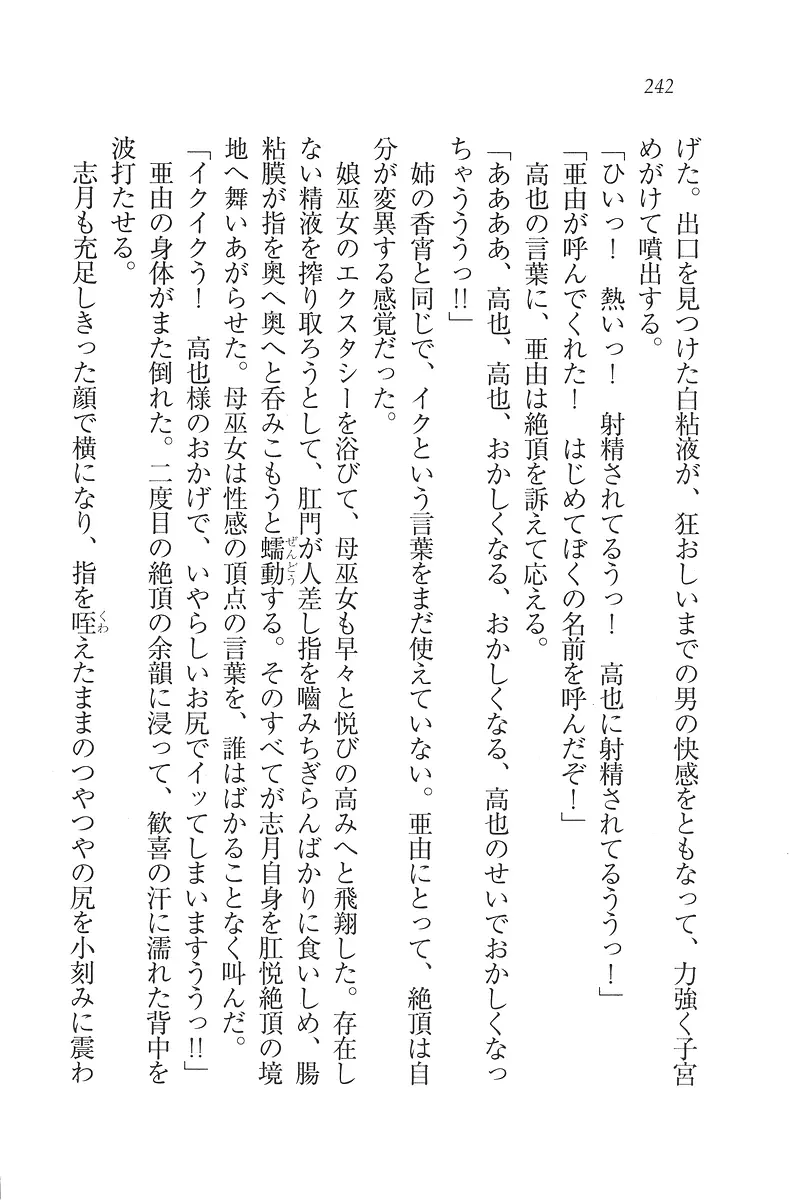 242
げた。出口を見つけた白粘液が、狂おしいまでの男の快感をともなって、力強く子宮
めがけて噴出する。
「ひいっ！　熱いっ！　射精されてるうっ！　高也に射精されてるううっ！」
「亜由が呼んでくれた！　はじめてぼくの名前を呼んだぞ！」
高也の言葉に、亜由は絶頂を訴えて応える。
「ああああ、高也、高也、おかしくなる、おかしくなる、高也のせいでおかしくなっ
ちゃうううっ!!」
姉の香宵と同じで、イクという言葉をまだ使えていない。亜由にとって、絶頂は自
分が変異する感覚だった。
娘巫女のエクスタシーを浴びて、母巫女も早々と悦びの高みへと飛翔した。存在し
ない精液を搾り取ろうとして、肛門が人差し指を嚙みちぎらんばかりに食いしめ、腸
粘膜が指を奥へ奥へと呑みこもうと蠕動ぜんどうする。そのすべてが志月自身を肛悦絶頂の境
地へ舞いあがらせた。母巫女は性感の頂点の言葉を、誰はばかることなく叫んだ。
「イクイクう！　高也様のおかげで、いやらしいお尻でイッてしまいますううっ!!」
亜由の身体がまた倒れた。二度目の絶頂の余韻に浸って、歓喜の汗に濡れた背中を
波打たせる。
志月も充足しきった顔で横になり、指を咥くわえたままのつやつやの尻を小刻みに震わ